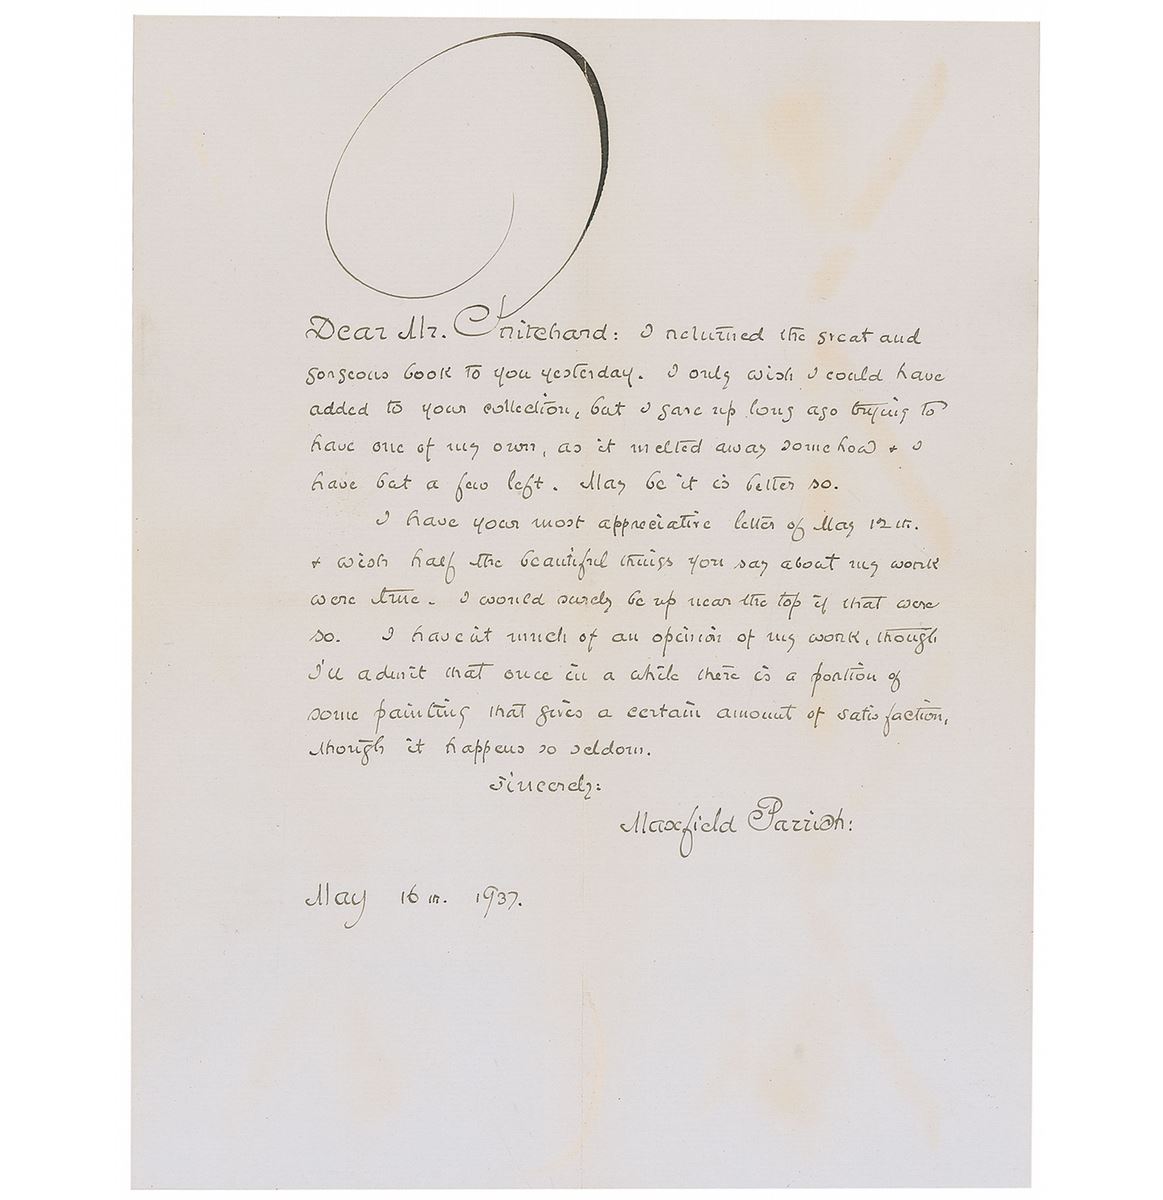 Dear Mr. Pritchard: I returned the great and
gorgeous book to you yesterday. I only wish I could have
added to your collection, but I gave up long ago trying to
have one of my own, as it melted away somehow + I
have but a few left. May be it is better so.
I have your most appreciative letter of May 12th.
+ wish half the beautiful things you say about my work
were true. I would surely be up near the top if that were
so. I have'nt much of an opinion of my work, though
I'll admit that once in a while there is a portion of
some painting that gives a certain amount of satisfaction,
though it happens so seldom.
Sincerely:
Maxfield Parrish:
May 16th. 1937.